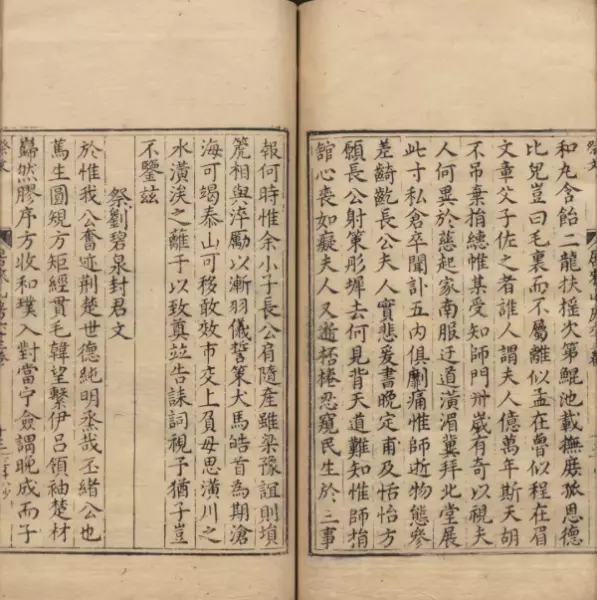 和丸含飴二龍扶搖次第鯤池載撫歷孤恩德
比兒豈曰毛裏而不屬離似孟在魯似程在眉
文章父子佐之者誰人謂夫人億萬年斯天胡
不吊棄捐總惟某受知師門卅歲有奇以視夫
人何異於慈起家南服迂道潢湄冀拜北堂展
此寸私倉卒聞訃五內俱劘痛惟師逝物態參
差齮齕長公夫人實悲爰書晚定甫及怡怡方
願長公射策彤墀去何見背天道難知惟師捐
館心喪如癡夫人又逝栝棬忍窺民生於三事
報何時惟余小子長公肩隨產雖梁豫誼則塤
篪相與淬勵以漸羽儀誓策犬馬皓首為期滄
海可竭泰山可移敢效市交上負母思潢川之
水潢涘之蘺于以致奠竝告誄詞視予猶子豈
不鑒茲
祭劉碧泉封君文
於惟我公奮迹荊楚世德純明烝哉丕緒公也
篤生圓規方矩經貫毛韓望繫伊呂領袖楚材
巋然膠序方收和璞入對當宁僉謂晚成而子